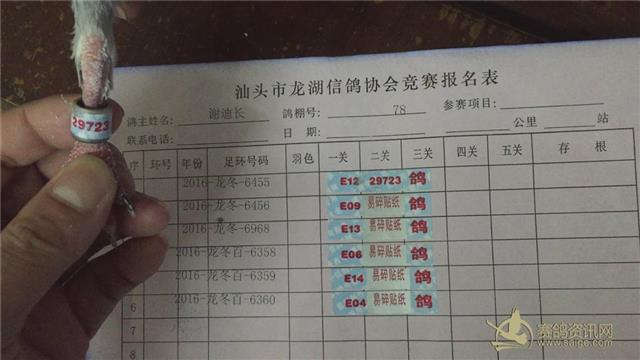 29723
汕头市龙湖信鸽协会竞赛报名表
鸽主姓名: 谢迪长 鸽棚号: 78 参赛项目:
联系电话: 日期: 公里 站
序 环号 年份 足环号码 羽色 一关 二关 三关 四关 五关 存根
2016-龙冬-6455 E12 29723 鸽
2016-龙冬-6456 E09 易碎贴纸 鸽
2016-龙冬-6968 E13 易碎贴纸 鸽
2016-龙冬百-6358 E06 易碎贴纸 鸽
2016-龙冬百-6359 E14 易碎贴纸 鸽
6 2016-龙冬百-6360 E04 易碎贴纸 鸽
7
8
赛鸽资讯网
www.saige.com